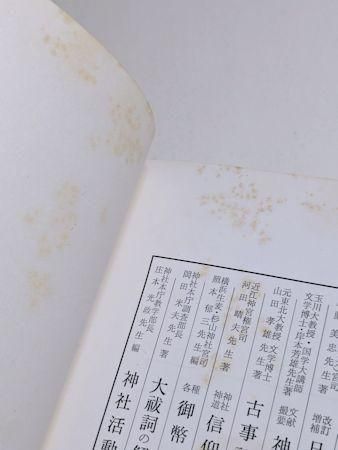 照 美忠先生著
玉川大教授・国学大講師
文学博士・岸本芳雄先生著
改訂
増補
日
元東北大教授 文学博士
山田孝雄先生著
文献
撮要
神
近江神宮権宮司
河田晴夫先生著
古事
横浜生麦・杉山神社宮司
照本郁三先生著
神社
神道
信仰
神社本庁調査部長
岡田米夫先生編
各種
御幣
大祓詞の解
神社本庁教学部長
庄本光政先生編
神社活動